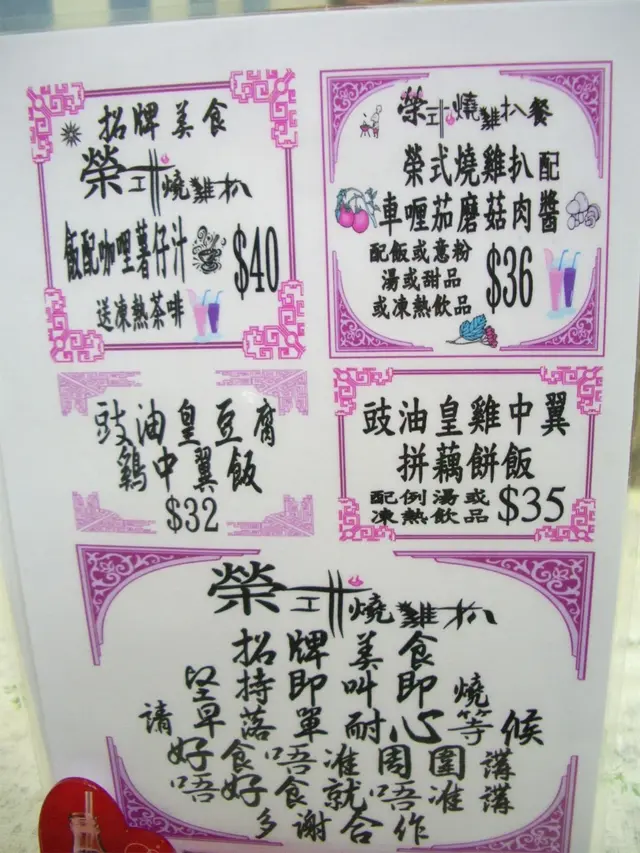 招牌美食
榮式燒雞扒
飯配咖哩薯仔汁
$40
送凍熱茶啡
榮式燒雞扒餐
榮式燒雞扒配
車喱茄磨菇肉醬
配飯或意粉
湯或甜品
或凍熱飲品
$36
豉油皇豆腐
鷄中翼飯
$32
豉油皇雞中翼
拼藕餅飯
配例湯或
凍熱飲品
$35
榮式燒雞扒
招牌美食
堅持即叫即燒
請早落單耐心等候
好食唔准周圍講
唔好食就唔准講
多謝合作